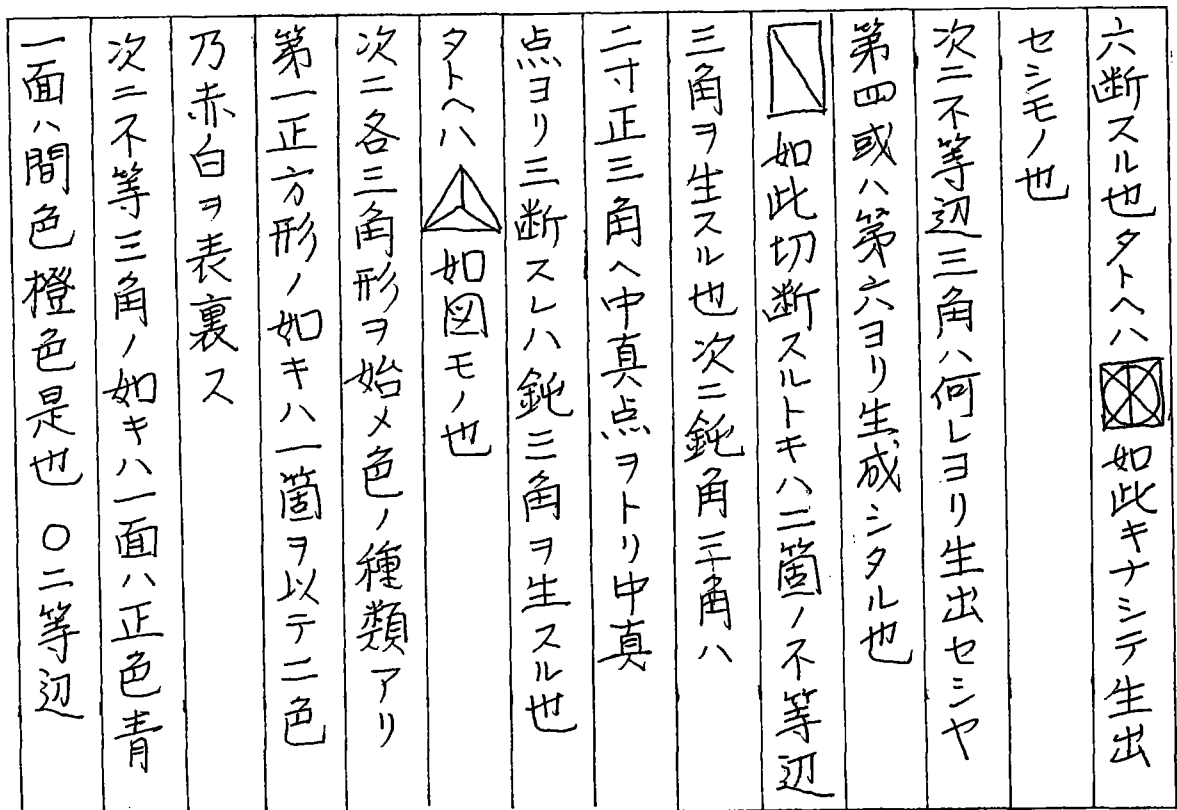 六断スル也タトヘハ如此キナシテ生出
セシモノ也
次ニ不等辺三角ハ何レヨリ生出セシヤ
第四或ハ第六ヨリ生成シタル也
如此切断スルトキハ二箇ノ不等辺
三角ヲ生スル也次ニ鈍角三角ハ
二寸正三角ヘ中真点ヲトリ中真
点ヨリ三断スレハ鈍三角ヲ生スル也
タトヘハ如図モノ也
次ニ各三角形ヲ始メ色ノ種類アリ
第一正方形ノ如キハ一箇ヲ以テ二色
乃赤白ヲ表裏ス
次ニ不等三角ノ如キハ一面ハ正色青
一面ハ間色橙色是也 〇二等辺